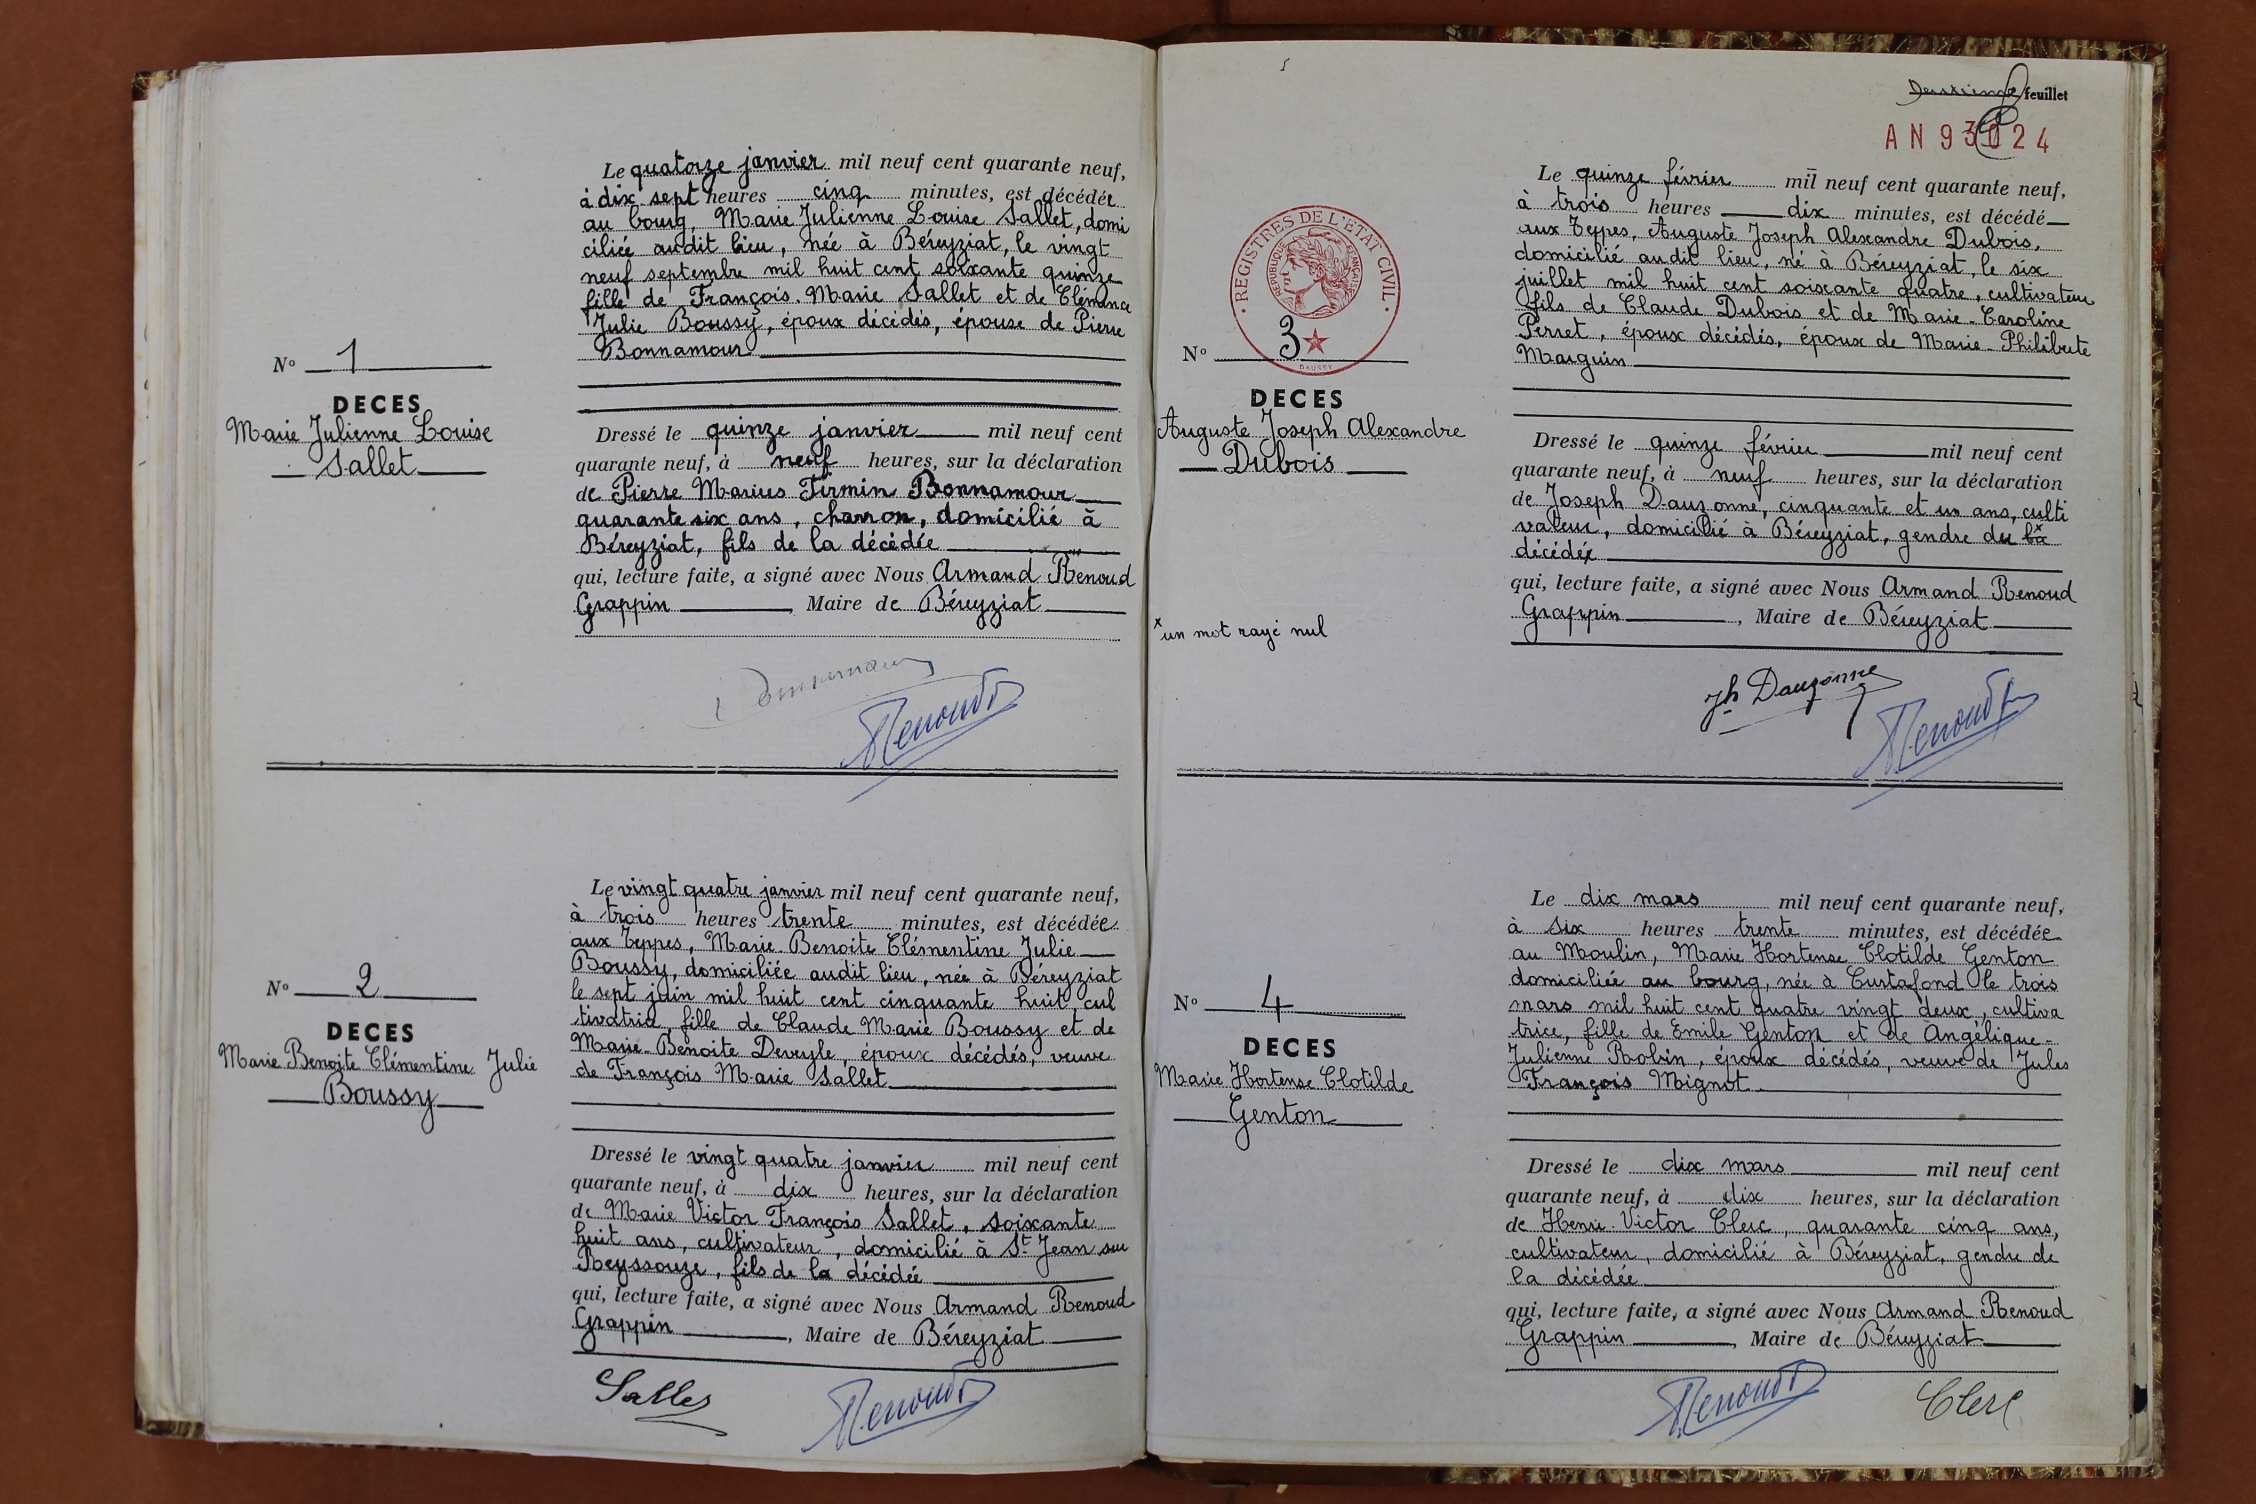 Le quatorze janvier mil neuf cent quarante neuf,
à dix sept heures cinq minutes, est décédée
au bourg, Marie Julienne Louise Sallet, domi
ciliée audit lieu, née à Béreyziat, le vingt
neuf septembre mil huit cent soixante quinze
fille de François-Marie Sallet et de Clémence
Julie Boussy, époux décédés, épouse de Pierre
Bonnamour
N° 1
DECES
Marie Julienne Louise
Sallet
Dressé le quinze janvier mil neuf cent
quarante neuf, à neuf heures, sur la déclaration
de Pierre Marius Firmin Bonnamour
quarante six ans, charron, domicilié à
Béreyziat, fils de la décédée
qui, lecture faite, a signé avec Nous Armand Renoud
Grappin, Maire de Béreyziat
Bonnamour
Renoud
Le vingt quatre janvier mil neuf cent quarante neuf,
à trois heures trente minutes, est décédée
aux Teppes, Marie-Benoite Clémentine Julie
Boussy, domiciliée audit lieu, née à Béreyziat
le sept juin mil huit cent cinquante huit, cul
tivatrice, fille de Claude Marie Boussy et de
Marie-Benoite Deveyle, époux décédés, veuve
de François Marie Sallet
N° 2
DECES
Marie Benoite Clémentine Julie
Boussy
Dressé le vingt quatre janvier mil neuf cent
quarante neuf, à dix heures, sur la déclaration
de Marie Victor François Sallet, soixante
huit ans, cultivateur, domicilié à St Jean sur
Reyssouze, fils de la décédée
qui, lecture faite, a signé avec Nous Armand Renoud
Grappin, Maire de Béreyziat
Sallet
Renoud
Deuxième feuillet
AN 93024
REGISTRES DE L'ETAT CIVIL
REPUBLIQUE FRANÇAISE
DAUSSY
Le quinze février mil neuf cent quarante neuf,
à trois heures dix minutes, est décédé
aux Teppes, Auguste Joseph Alexandre Dubois,
domicilié audit lieu, né à Béreyziat, le six
juillet mil huit cent soixante quatre, cultivateur
fils de Claude Dubois et de Marie-Caroline
Perret, époux décédés, époux de Marie-Philiberte
Marguin
N° 3
DECES
Auguste Joseph Alexandre
Dubois
Dressé le quinze février mil neuf cent
quarante neuf, à neuf heures, sur la déclaration
de Joseph Dauzonne, cinquante et un ans, culti
vateur, domicilié à Béreyziat, gendre du la x
décédé
qui, lecture faite, a signé avec Nous Armand Renoud
Grappin, Maire de Béreyziat
x un mot rayé nul
Jh Dauzonne
Renoud
Le dix mars mil neuf cent quarante neuf,
à six heures trente minutes, est décédée
au Moulin, Marie Hortense Clotilde Genton
domiciliée au bourg, née à Curtafond le trois
mars mil huit cent quatre vingt deux, cultiva
trice, fille de Emile Genton et de Angélique-
Julienne Robin, époux décédés, veuve de Jules
François Mignot
N° 4
DECES
Marie Hortense Clotilde
Genton
Dressé le dix mars mil neuf cent
quarante neuf, à dix heures, sur la déclaration
de Henri-Victor Clerc, quarante cinq ans,
cultivateur, domicilié à Béreyziat, gendre de
la décédée
qui, lecture faite, a signé avec Nous Armand Renoud
Grappin, Maire de Béreyziat
Renoud
Clerc